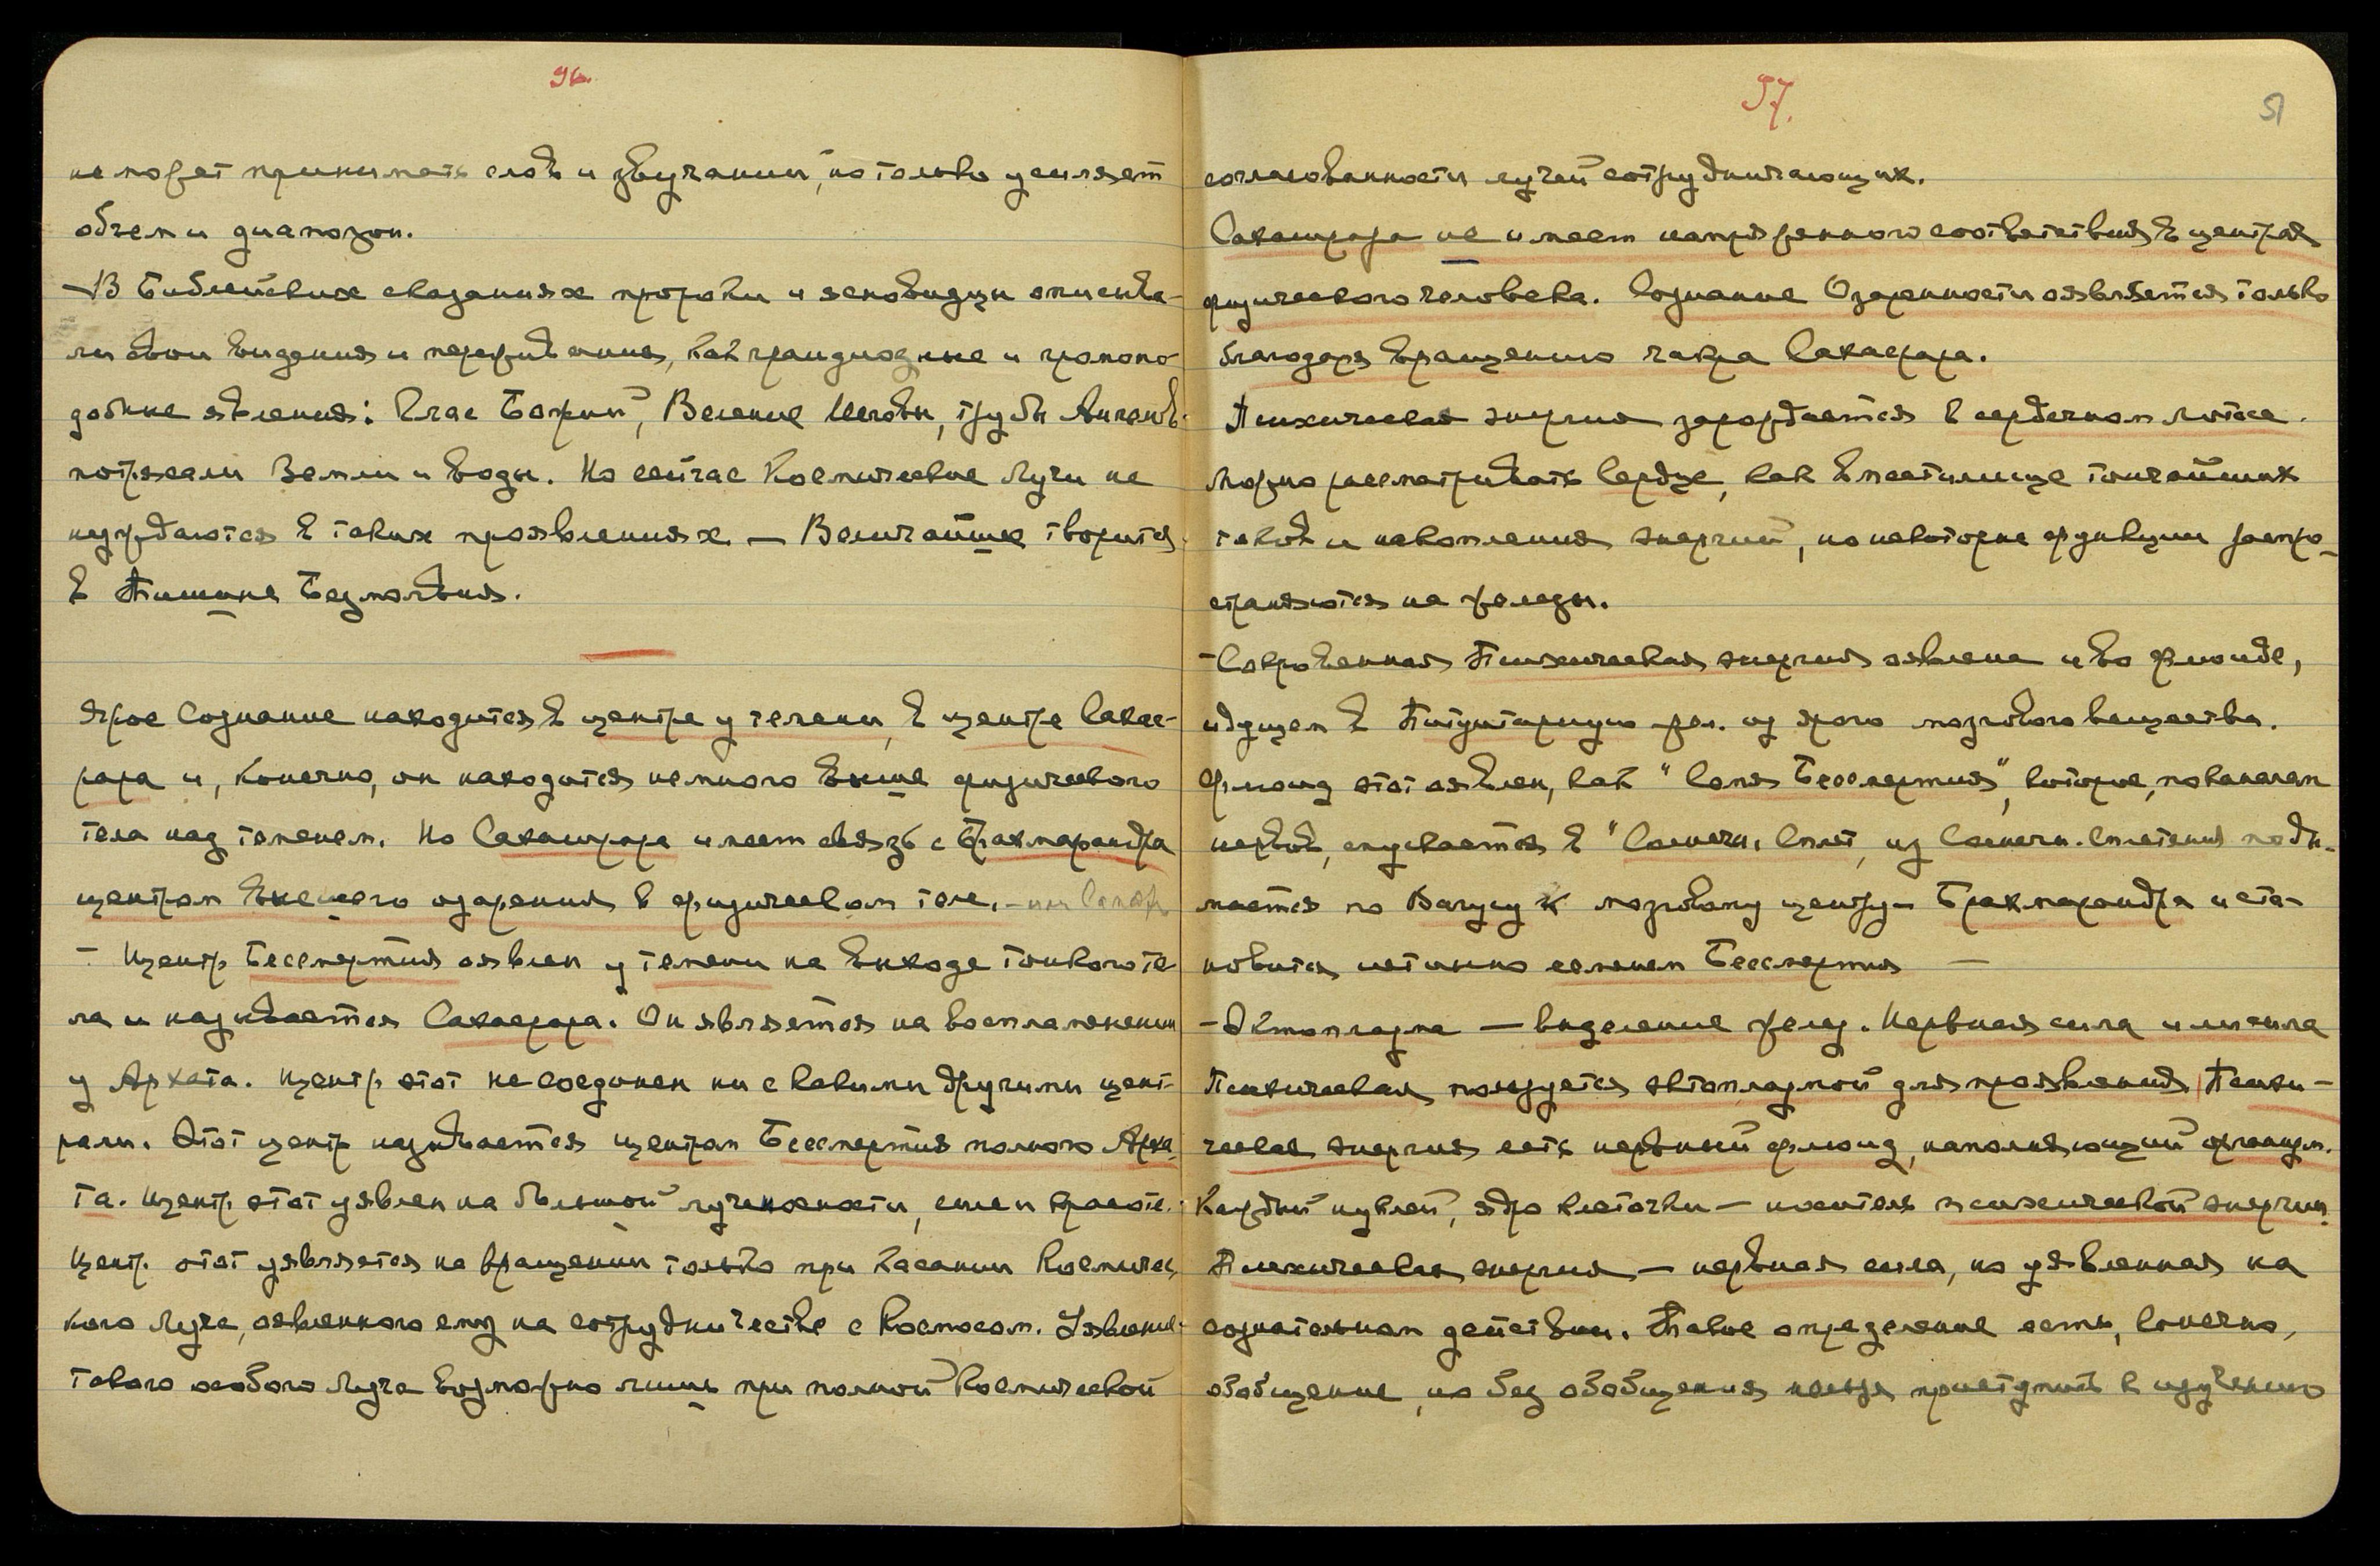 96.
не может принимать слов и звучании, но только усиляет
объем и диапазон.
— В Библейских сказаниях пророки и ясновидцы описыва-
ли свои видения и переживания, как грандиозные и громопо-
добные явления: Глас Божий, Веление Иеговы, трубы Ангелов
потрясали Земли и воды. Но сейчас Космические Лучи не
нуждаются в таких проявлениях — Величайшее творится
в Тишине Безмолвия.
Ярое Сознание находится в центре у темени, в центре Сахас-
рара и, конечно, он находится немного выше физического
тела над теменем. Но Сахасрара имеет связь с Брахмарандра
центром высшего озарения в физическом теле. —
— Центр Бессмертия оявлен у темени на выходе тонкого те-
ла и называется Сахасрара. Он является на воспламенении
у Архата. Центр этот не соединен ни с какими другими цент-
рами. Этот центр называется центром Бессмертия полного Арха-
та. Центр этот уявлен на большой лученосности, силе и красоте.
Центр этот уявляется на вращении только при касании Космичес-
кого Луча, оявленного ему на сотрудничестве с Космосом. Уявление
такого особого Луча возможно лишь при полной Космической
97.
51
согласованности лучей сотрудничающих.
Сахасрара не имеет напряженного соответствия в центрах
физического человека. Сознание Озаренности оявляется только
благодаря вращению чакра Сахасрара.
Психическая энергия зарождается в сердечном лотосе.
Можно рассматривать Сердце, как вместилище тончайших
токов и накопления энергий, но некоторые функции распро-
страняются на железы.
— Сокровенная Психическая энергия оявлена и во флюиде,
идущем в Питуитарную жел. из ярого мозгового вещества.
Флюид этот оявлен, как "Семя Бессмертия", которое, по каналам
нервов, спускается в "Солнечн. Сплет, из Солнечн. Сплетения подн-
мается по Вагусу к мозговому центру — Брахмарандра и ста-
новится истинно семенем Бессмертия —
— Эктоплазма — выделение желез. Нервная сила или сила
Психическая пользуется эктоплазмой для проявления, Психи-
ческая энергия есть нервный флюид, наполняющий организм.
Каждый нуклей, ядро клеточки — носитель психической энергии.
Психическая энергия — нервная сила, но уявленная на
сознательном действии. Такое определение есть, конечно,
обобщение, но без обобщения нельзя приступить к изучению